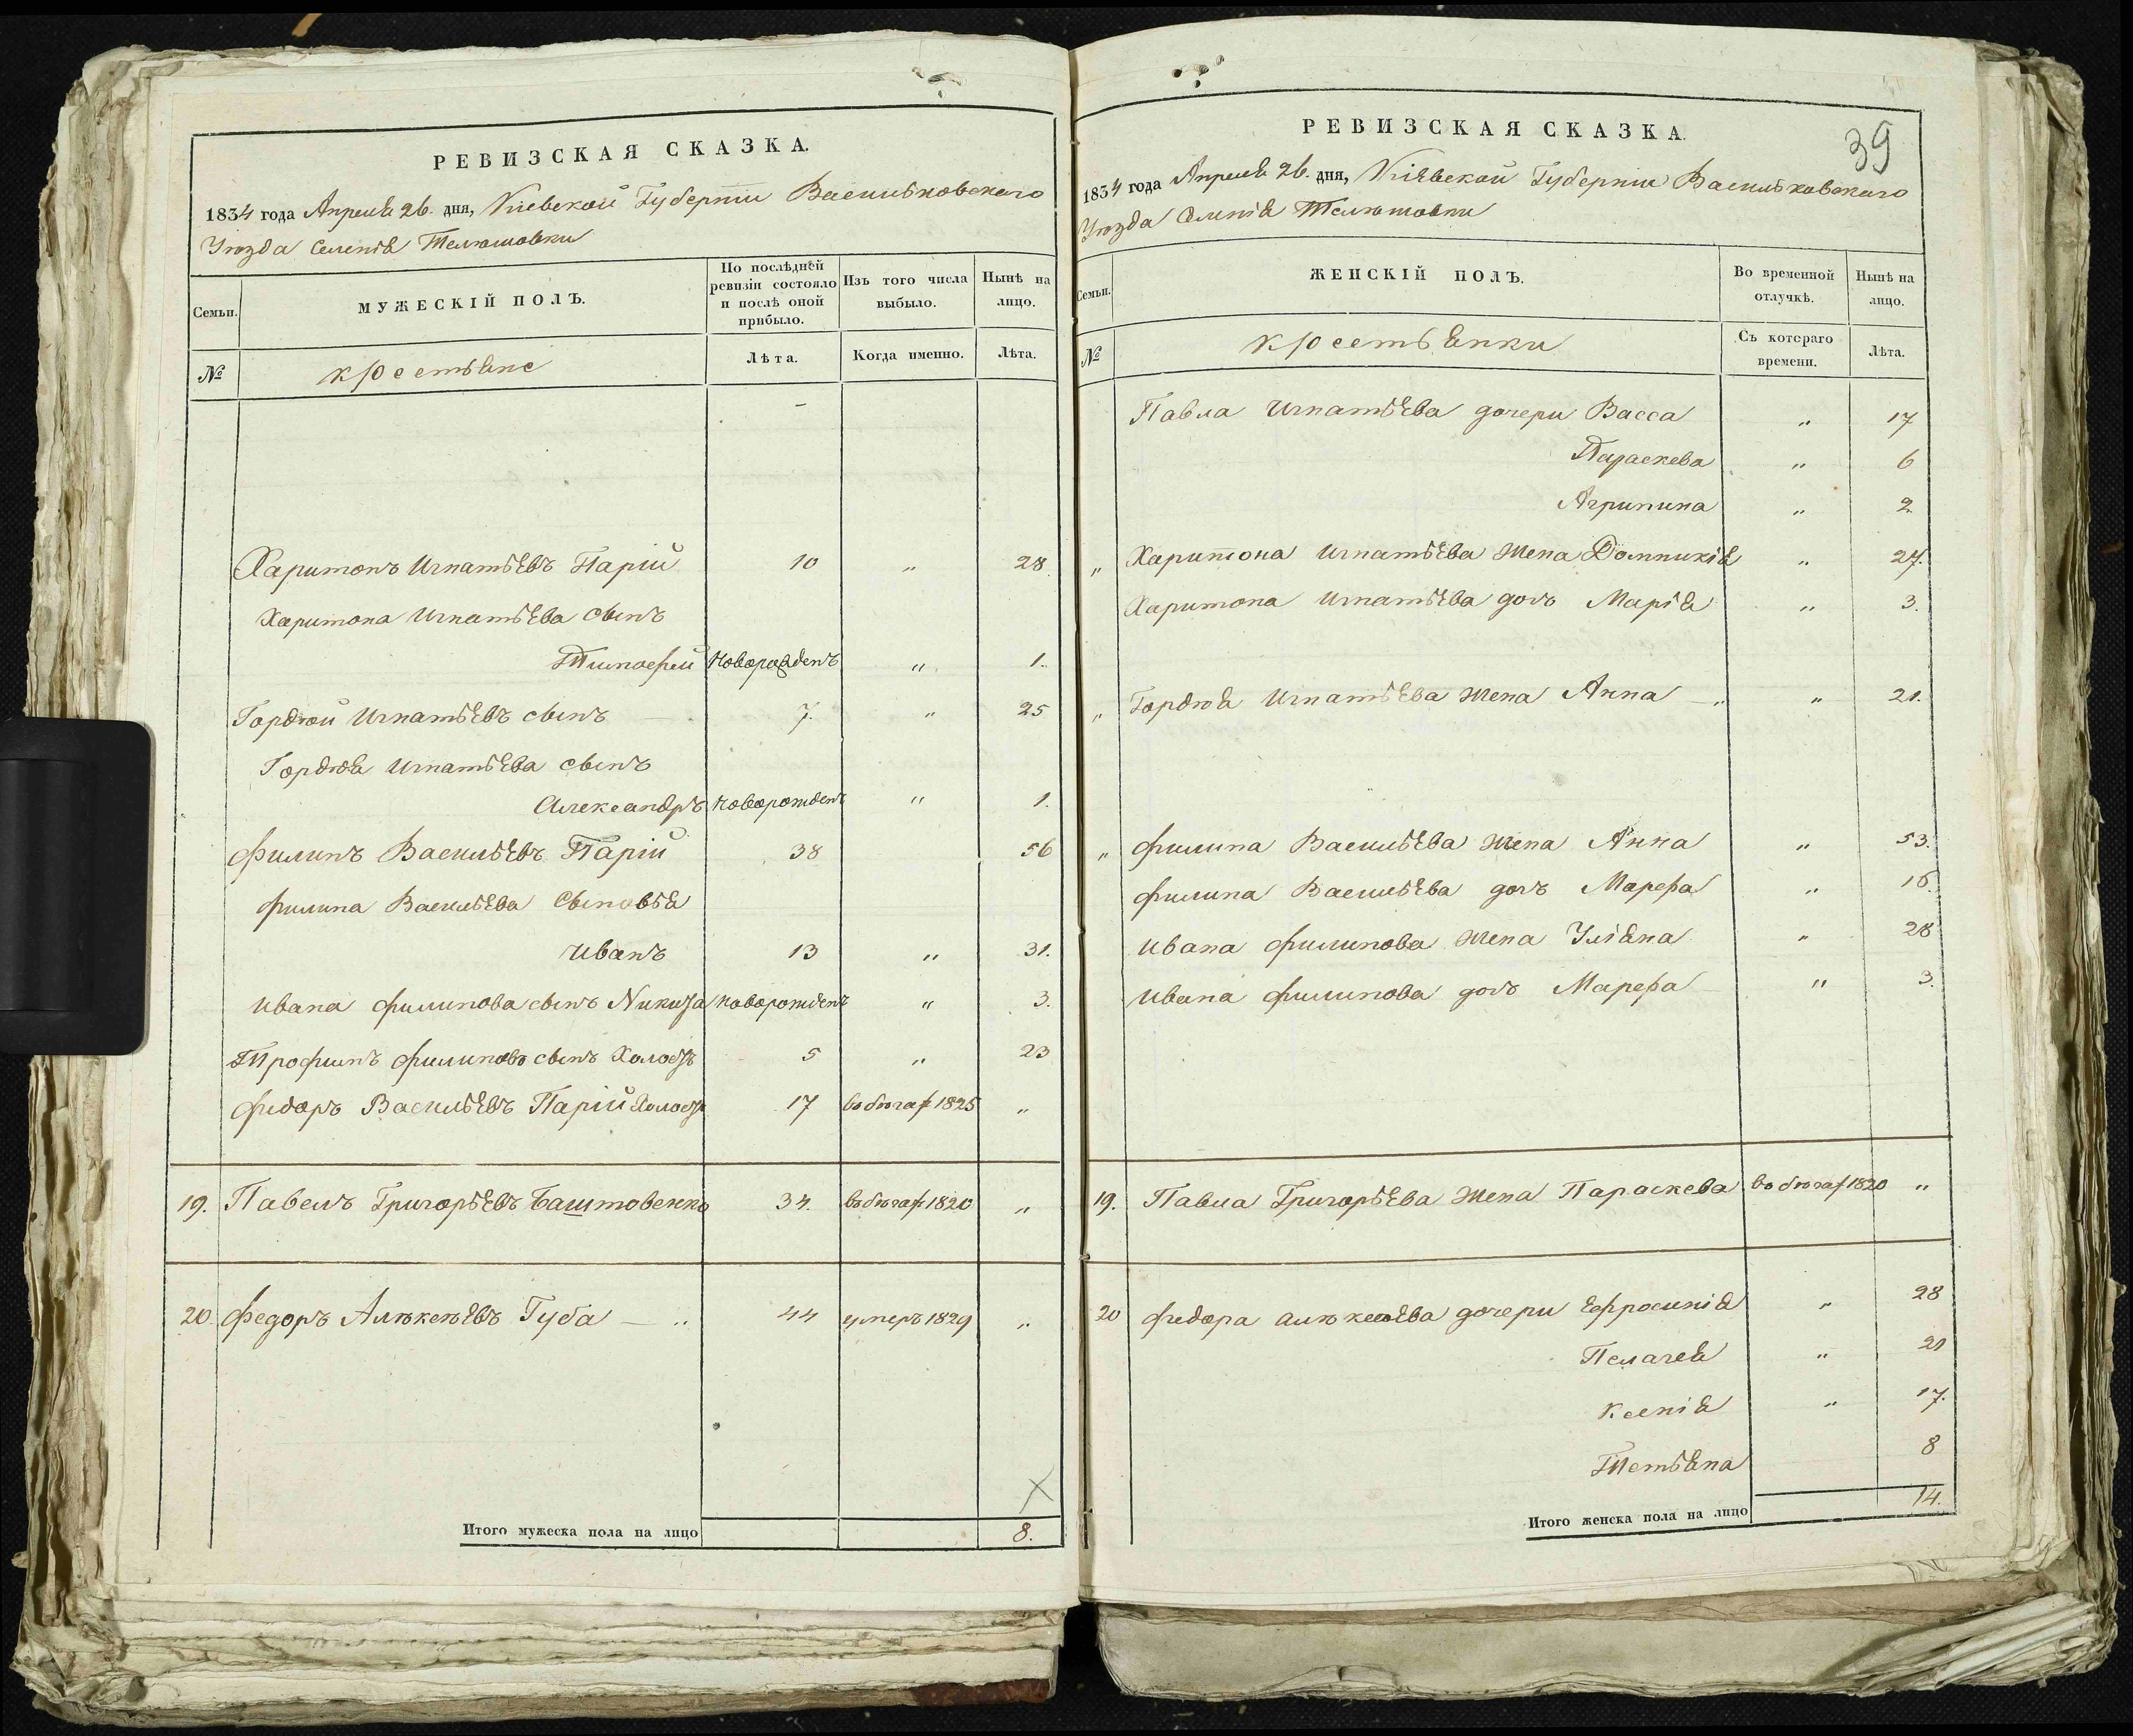 РЕВИЗСКАЯ СКАЗКА.
1834 года Апреля 26. дня, Киевской Губернии Васильковского
Уезда Селения Телюшовки
Семьи.
МУЖЕСКІЙ ПОЛЪ.
По послѣдней ревизіи состояло и послѣ оной прибыло.
Изъ того числа выбыло.
Нынѣ на лицо.
№
крестьяне
Лѣта.
Когда именно.
Лѣта.
Харитонъ Игнатьевъ Парій 10 " 28
Харитона Игнатьева сынъ
Тимофей Новорожденъ " 1.
Гордѣй Игнатьевъ сынъ — 7. " 25
Гордѣя Игнатьева сынъ
Александръ Новорожденъ " 1.
Филипъ Васильевъ Парій 38 56
Филипа Васильева Сыновья
Иванъ 13 " 31.
Ивана Филипова сынъ Никита новорожденъ " 3.
Трофимъ Филиповъ сынъ Холостъ 5 " 23
Федоръ Васильевъ Парій Холостъ 17 въ бѣгах 1825 "
19. Павелъ Григорьевъ Баштовенко 34. въ бѣгах 1820 "
20. Федоръ Алѣксѣевъ Губа — " 44 умеръ 1829 "
Итого мужеска пола на лицо 8.
39
РЕВИЗСКАЯ СКАЗКА.
1834 года Апреля 26. дня, Кіевской Губернии Васильковского
Уезда Селенія Телюшовки
Семьи.
ЖЕНСКІЙ ПОЛЪ.
Во временной отлучкѣ.
Нынѣ на лицо.
№
крестьянки
Съ котораго времени.
Лѣта.
Павла Игнатьева дочери Васса " 17
Параскева " 6
Агрипина " 2
" Харитона Игнатьева жена Домникія " 27.
Харитона Игнатьева дочь Марія " 3.
" Гордѣя Игнатьева жена Анна — " " 21.
" Филипа Васильева жена Анна " 53.
Филипа Васильева дочь Марфа " 16.
Ивана Филипова жена Уліяна " 28
Ивана Филипова дочь Марфа " 3.
19. Павла Григорьева жена Параскева въ бѣгах 1820 "
20 Федора Алѣксѣева дочери Ефросинія " 28
Пелагея " 21
Ксенія " 17.
Тетьяна 8
Итого женска пола на лицо 14.